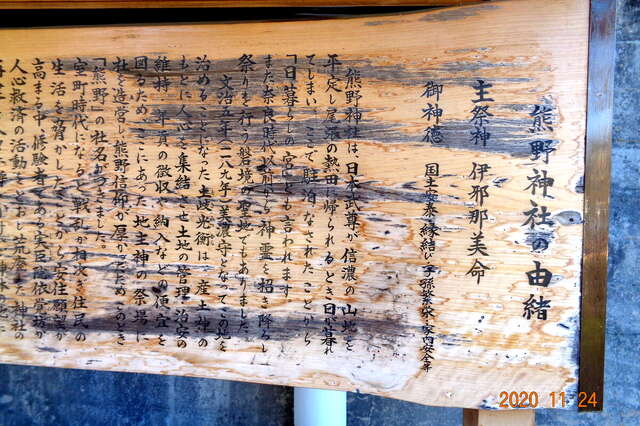 熊野神社の由緒
主祭神 伊邪那美命
御神徳 国土安泰・縁結び・子孫繁栄・家内安全等
熊野神社は、日本武尊が信濃の山地を
平定し尾張の熱田へ帰られるとき日が暮れ
てしまい、ここで駐泊なされたことから
「日暮らしの宮」とも言われます。
また奈良時代以前より神霊を招き降らし
祭りを行う磐境の聖地でもありました。
文治五年(一一八九年)美濃守となってこの地を
治めることとなった土岐光衡は、産土神の
もとに人心を集結させ土地の管理・治安の
維持、年貢の徴収や納入などの便宜を
図るため、ここにあった地主神の祭場に
社を造営し、熊野信仰が厚かったためこのとき
「熊野」の社名がつきました。
室町時代になると戦乱が相次ぎ住民の
生活を脅かしたことから安住願望が
高まる中、修験者である実臣院依賞坊が
人心救済の活動をとおし荒廃した神社の
2020 11 24